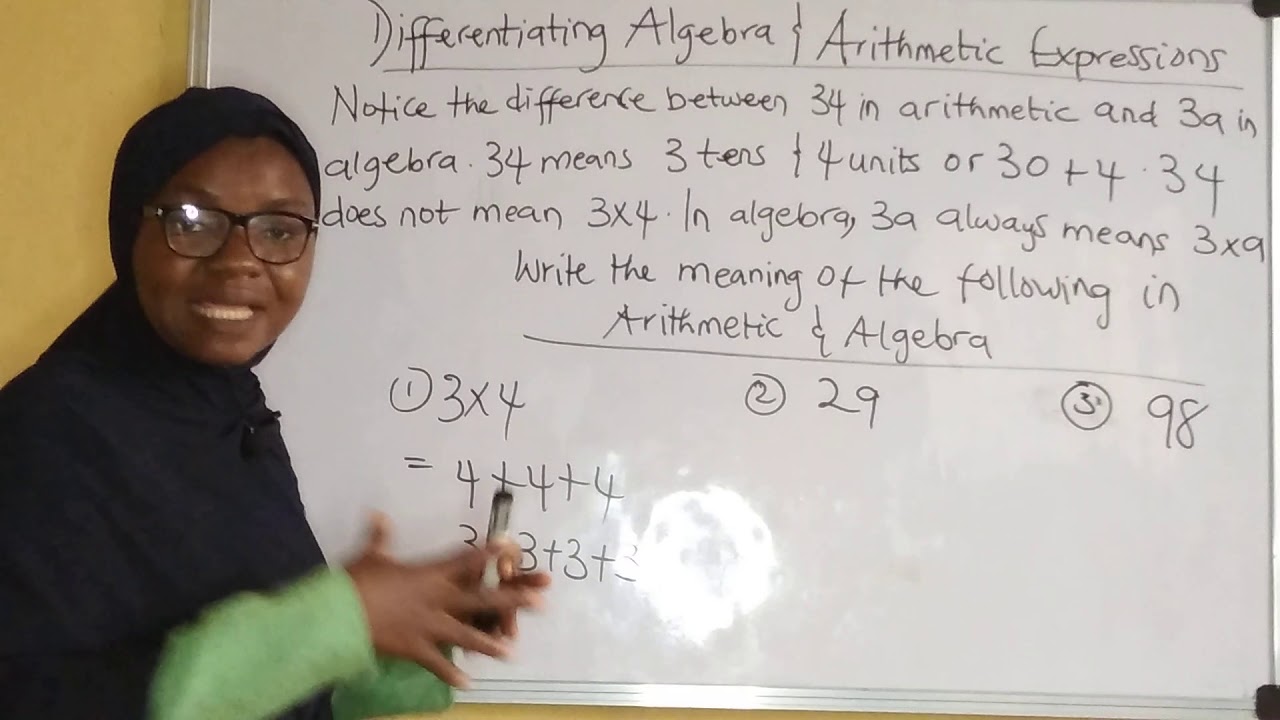 Differentiating Algebra & Arithmetic Expressions
Notice the difference between 34 in arithmetic and 3a in
algebra. 34 means 3 tens & 4 units or 30+4. 34
does not mean 3x4. In algebra, 3a always means 3xa
Write the meaning of the following in
Arithmetic & Algebra
① 3x4 ② 29 ③ 98
= 4+4+4
3+3+3